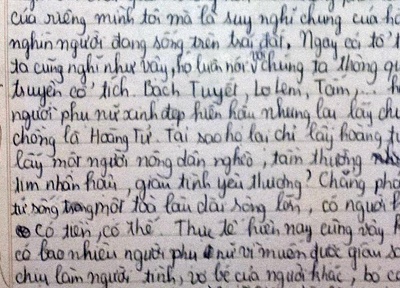 của riêng mình tôi mà là suy nghĩ chung của hà
nghìn người đang sống trên trái đất. Ngay cả tổ t
ta cũng nghĩ như vậy, họ luôn nói với chúng ta thông qu
truyện cổ tích. Bạch Tuyết, Lọ Lem, Tấm,... h
người phụ nữ xinh đẹp hiền hậu nhưng lại lấy chu
chồng là Hoàng Tử. Tại sao họ lại chỉ lấy hoàng tu
lấy một người nông dân nghèo, tầm thường
tim nhân hậu, giàu tình yêu thương? Chẳng phả
tử sống trong một toà lâu đài rộng lớn, có người h
có tiền, có thế. Thực tế hiện nay cũng vậy k
có bao nhiêu người phụ nữ vì muốn được giàu sa
chịu làm người tình, vợ bé của người khác, bỏ cả